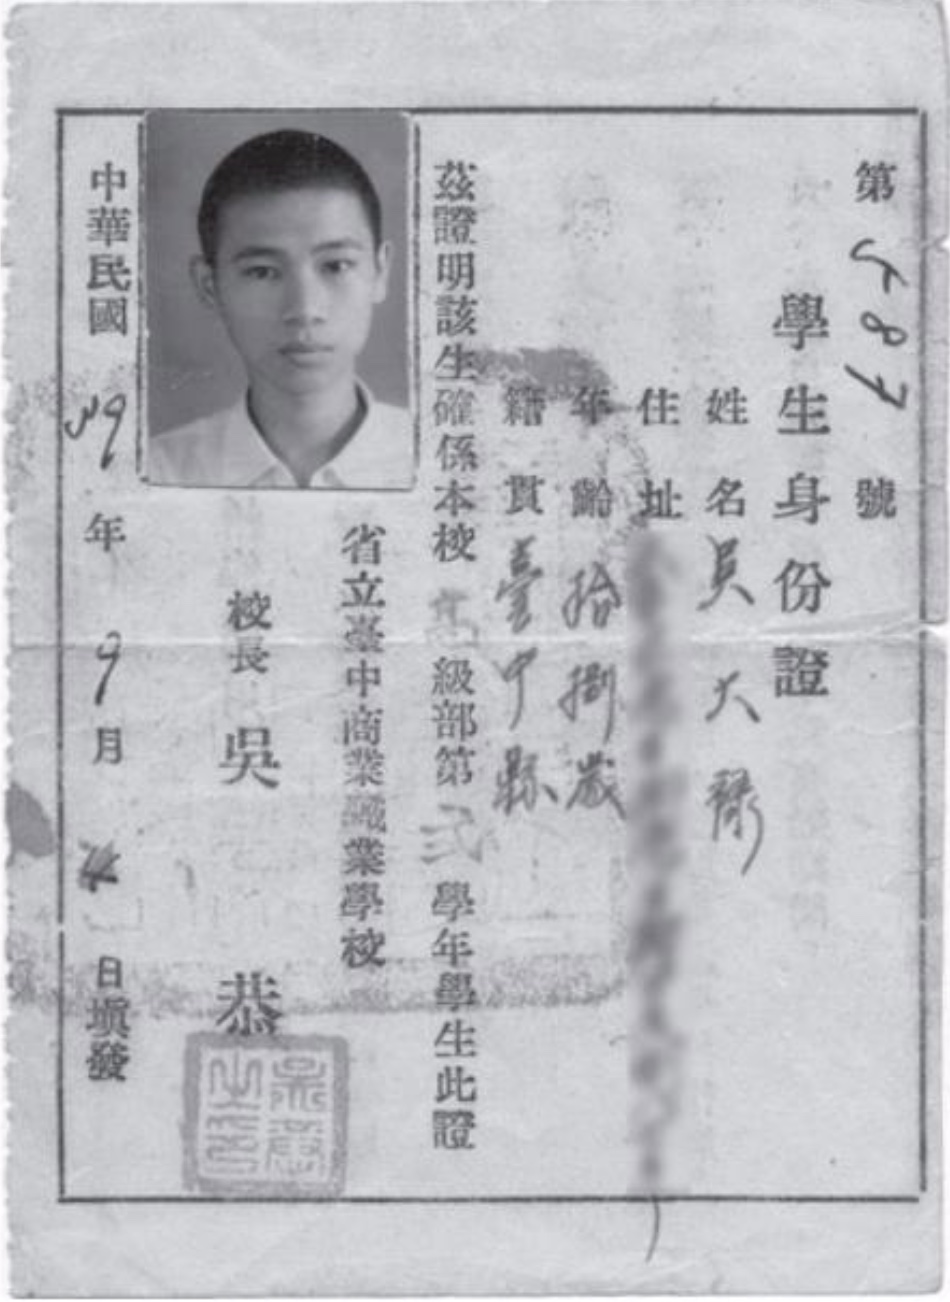 第587號
學生身份證
姓名 吳大
住址
年齡 拾捌歲
籍貫 臺中縣
茲證明該生確係本校高級部第弍學年學生此證
省立臺中商業職業學校
校長 吳 恭
中華民國39年9月 日塡發
吳恭之印